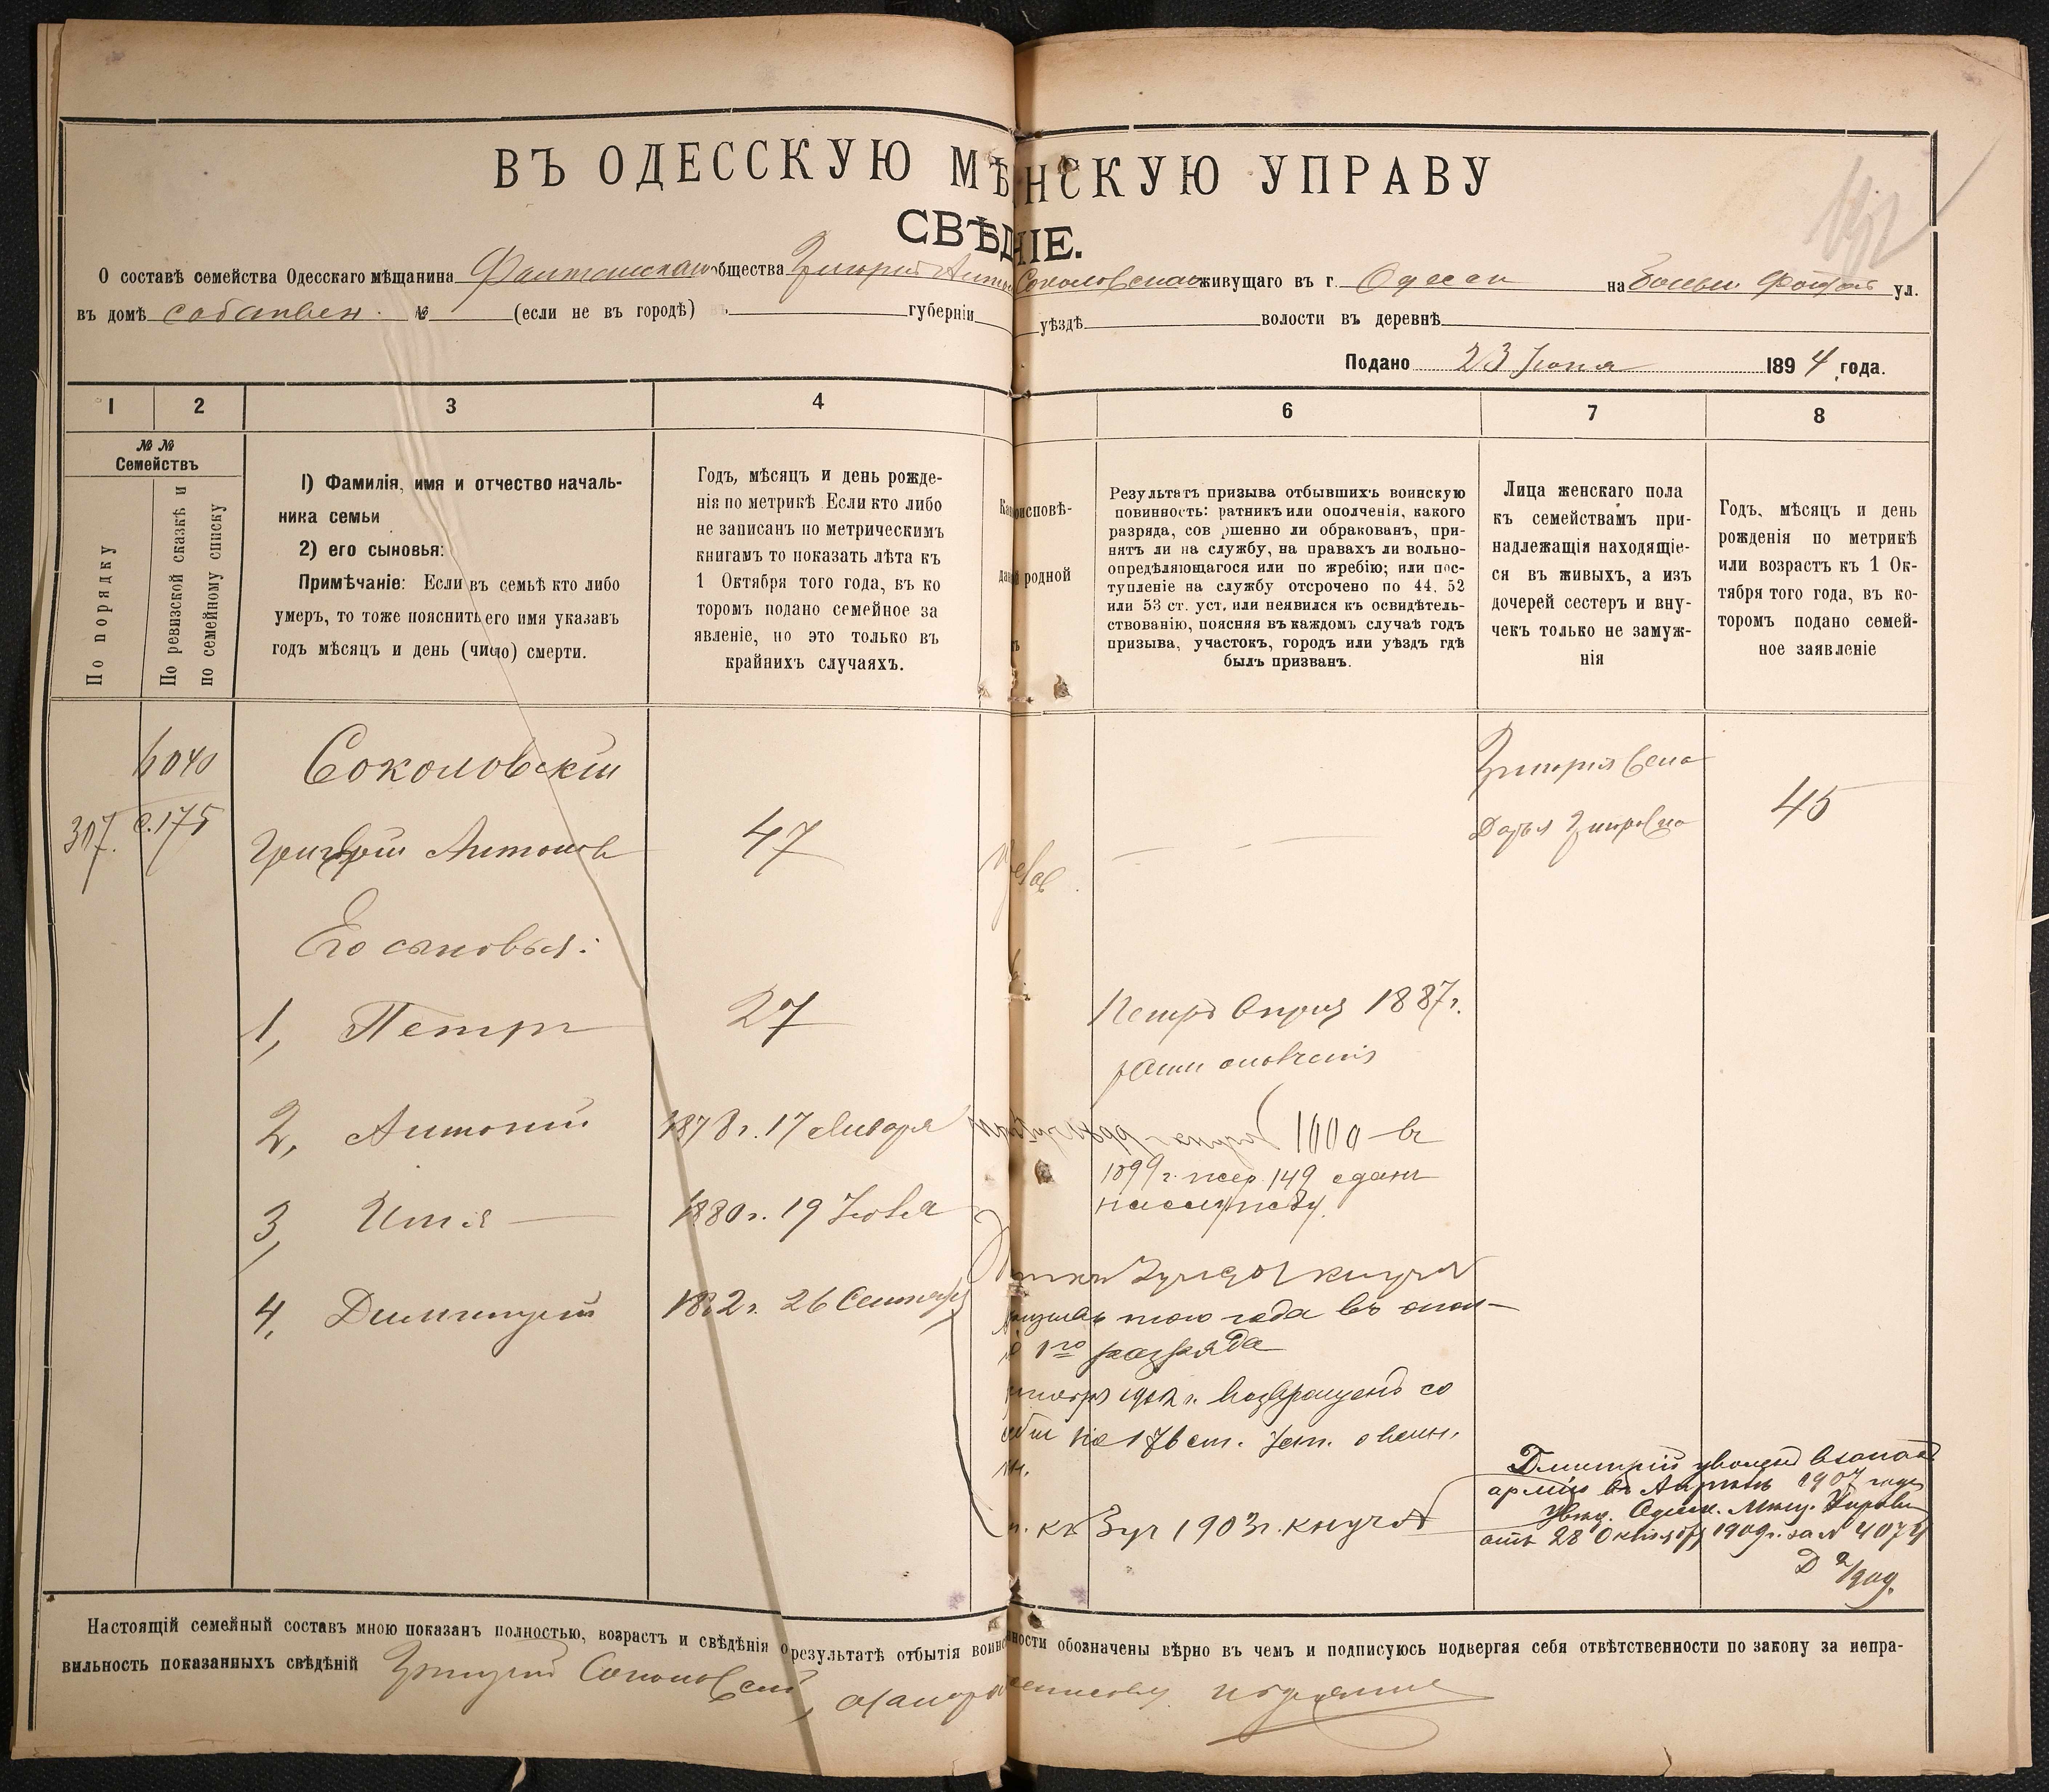 ВЪ ОДЕССКУЮ МѢ НСКУЮ УПРАВУ
СВѢД НІЕ.
О составѣ семейства Одесскаго мѣщанина Фонтанскаго общества Григорія Антон Соколовскаго живущаго въ г. Одессѣ на Больш. Фонтанѣ ул.
въ домѣ собствен. № (если не въ городѣ) въ губерніи уѣздѣ волости въ деревнѣ
Подано 23 Іюня 1894 года.
1 2 3 4 6 7 8
№ № Семействъ
По порядку
По ревизской сказкѣ и
по семейному списку
1) Фамилія, имя и отчество началь-
ника семьи
2) его сыновья:
Примѣчаніе: Если въ семьѣ кто либо
умеръ, то тоже пояснить его имя указавъ
годъ мѣсяцъ и день (число) смерти.
Годъ, мѣсяцъ и день рожде-
нія по метрикѣ Если кто либо
не записанъ по метрическимъ
книгамъ то показать лѣта къ
1 Октября того года, въ ко
торомъ подано семейное за
явленіе, но это только въ
крайнихъ случаяхъ.
Как оисповѣ-
дан й родной
Результатъ призыва отбывшихъ воинскую
повинность: ратникъ или ополченія, какого
разряда, сов ршенно ли обракованъ, при-
нятъ ли на службу, на правахъ ли вольно-
опредѣляющагося или по жребію; или пос-
тупленіе на службу отсрочено по 44, 52
или 53 ст. уст. или неявился къ освидѣтель-
ствованію, поясняя въ каждомъ случаѣ годъ
призыва, участокъ, городъ или уѣздъ гдѣ
былъ призванъ.
Лица женскаго пола
къ семействамъ при-
надлежащія находящіе-
ся въ живыхъ, а изъ
дочерей сестеръ и вну-
чекъ только не замуж-
нія
Годъ, мѣсяцъ и день
рожденія по метрикѣ
или возрастъ къ 1 Ок-
тября того года, въ ко-
торомъ подано семей-
ное заявленіе
307.
с. 175
Соколовскій
Григорій Антоновъ
47
Григорія жена
Дарья
45
Его сыновья:
1, Петръ
27
Петръ 1887 г.
ополченія
2, Антоній
1878 г. 17 Января
1899 г. жер. 149 сданъ
на службу.
3, Илья
1880 г. 19 Іюля
4, Димитрій
1882 г. 26 Сентября
того года въ опол-
1го разряда
1902 г. возвращенъ со
на 176 ст. Уст. о воин.
къ 3 уч 1903 г.
Дмитрій уволенъ въ запасъ
арміи въ Апрѣлѣ 1907 года
Увѣд. Одесск. Мѣщ. Управы
отъ 28 Октября 1909 г. за №
Настоящій семейный составъ мною показанъ полностью, возрастъ и свѣдѣнія о результатѣ отбытія воинс нности обозначены вѣрно въ чемъ и подписуюсь подвергая себя отвѣтственности по закону за непра-
вильность показанныхъ свѣдѣній Григорій Соколовскій,